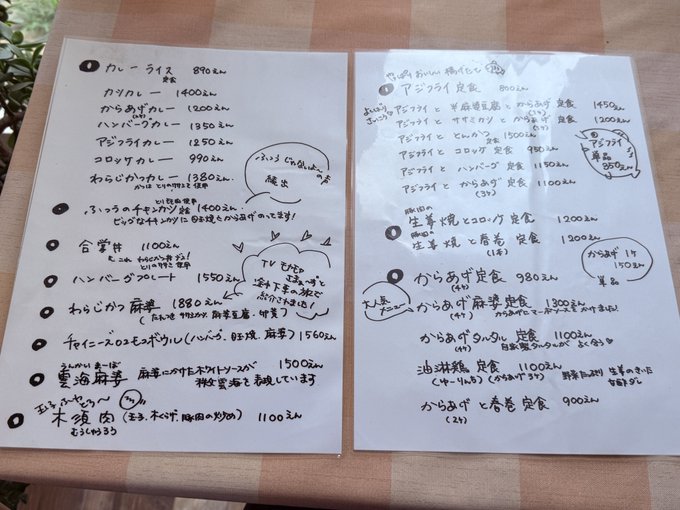 カレーライス 890えん
定食
カツカレー 1400えん
からあげカレー 1200えん
ハンバーグカレー 1350えん
アジフライカレー 1250えん
コロッケカレー 990えん
わらじかつカレー 1380えん
かつは とりのササミ 使用
ふつう じゃないよ〜の声
続出
ふつうのチキンカツ定食 1400えん
ビッグなチキンカツに目玉焼とからあげのってます!
合掌丼 1100えん
とりのササミ 使用
ハンバーグプレート 1550えん
TV
途中下車の旅で
紹介されました!
わらじかつ麻婆 1880えん
麻婆豆腐
チャイニーズロコモコボウル(ハンバーグ、目玉焼、麻婆) 1560えん
うんかいまーぼー
雲海麻婆 麻婆にかけたホワイトソースが 1500えん
秩父雲海を表現しています
木須肉 (玉子、木くらげ、豚肉の炒め) 1100えん
むうしゅうろう
やっぱりおいしい 揚げたて
アジフライ定食 800えん
アジフライと 半麻婆豆腐と からあげ定食 1450えん
アジフライと ササミカツと からあげ定食 1200えん
アジフライと とんかつ定食 1500えん
アジフライと コロッケ定食 950えん
アジフライと ハンバーグ定食 1150えん
アジフライと からあげ定食 1100えん
アジフライ
単品
350えん
豚ロース
生姜焼とコロッケ定食 1200えん
生姜焼と春巻定食 1200えん
(1本)
からあげ 1ケ
150えん
単品
からあげ定食 980えん
(4ケ)
大人気
メニュー
からあげ麻婆定食 1300えん
(4ケ) からあげにマーボソースをかけました!
からあげタルタル定食 1100えん
(4ケ) 自家製タルタルが よく合う
油淋鶏定食 1100えん
(ゆーりんちー) 野菜たっぷり 生姜のきいた
甘酢ダレ
からあげと春巻定食 900えん
(2ケ)